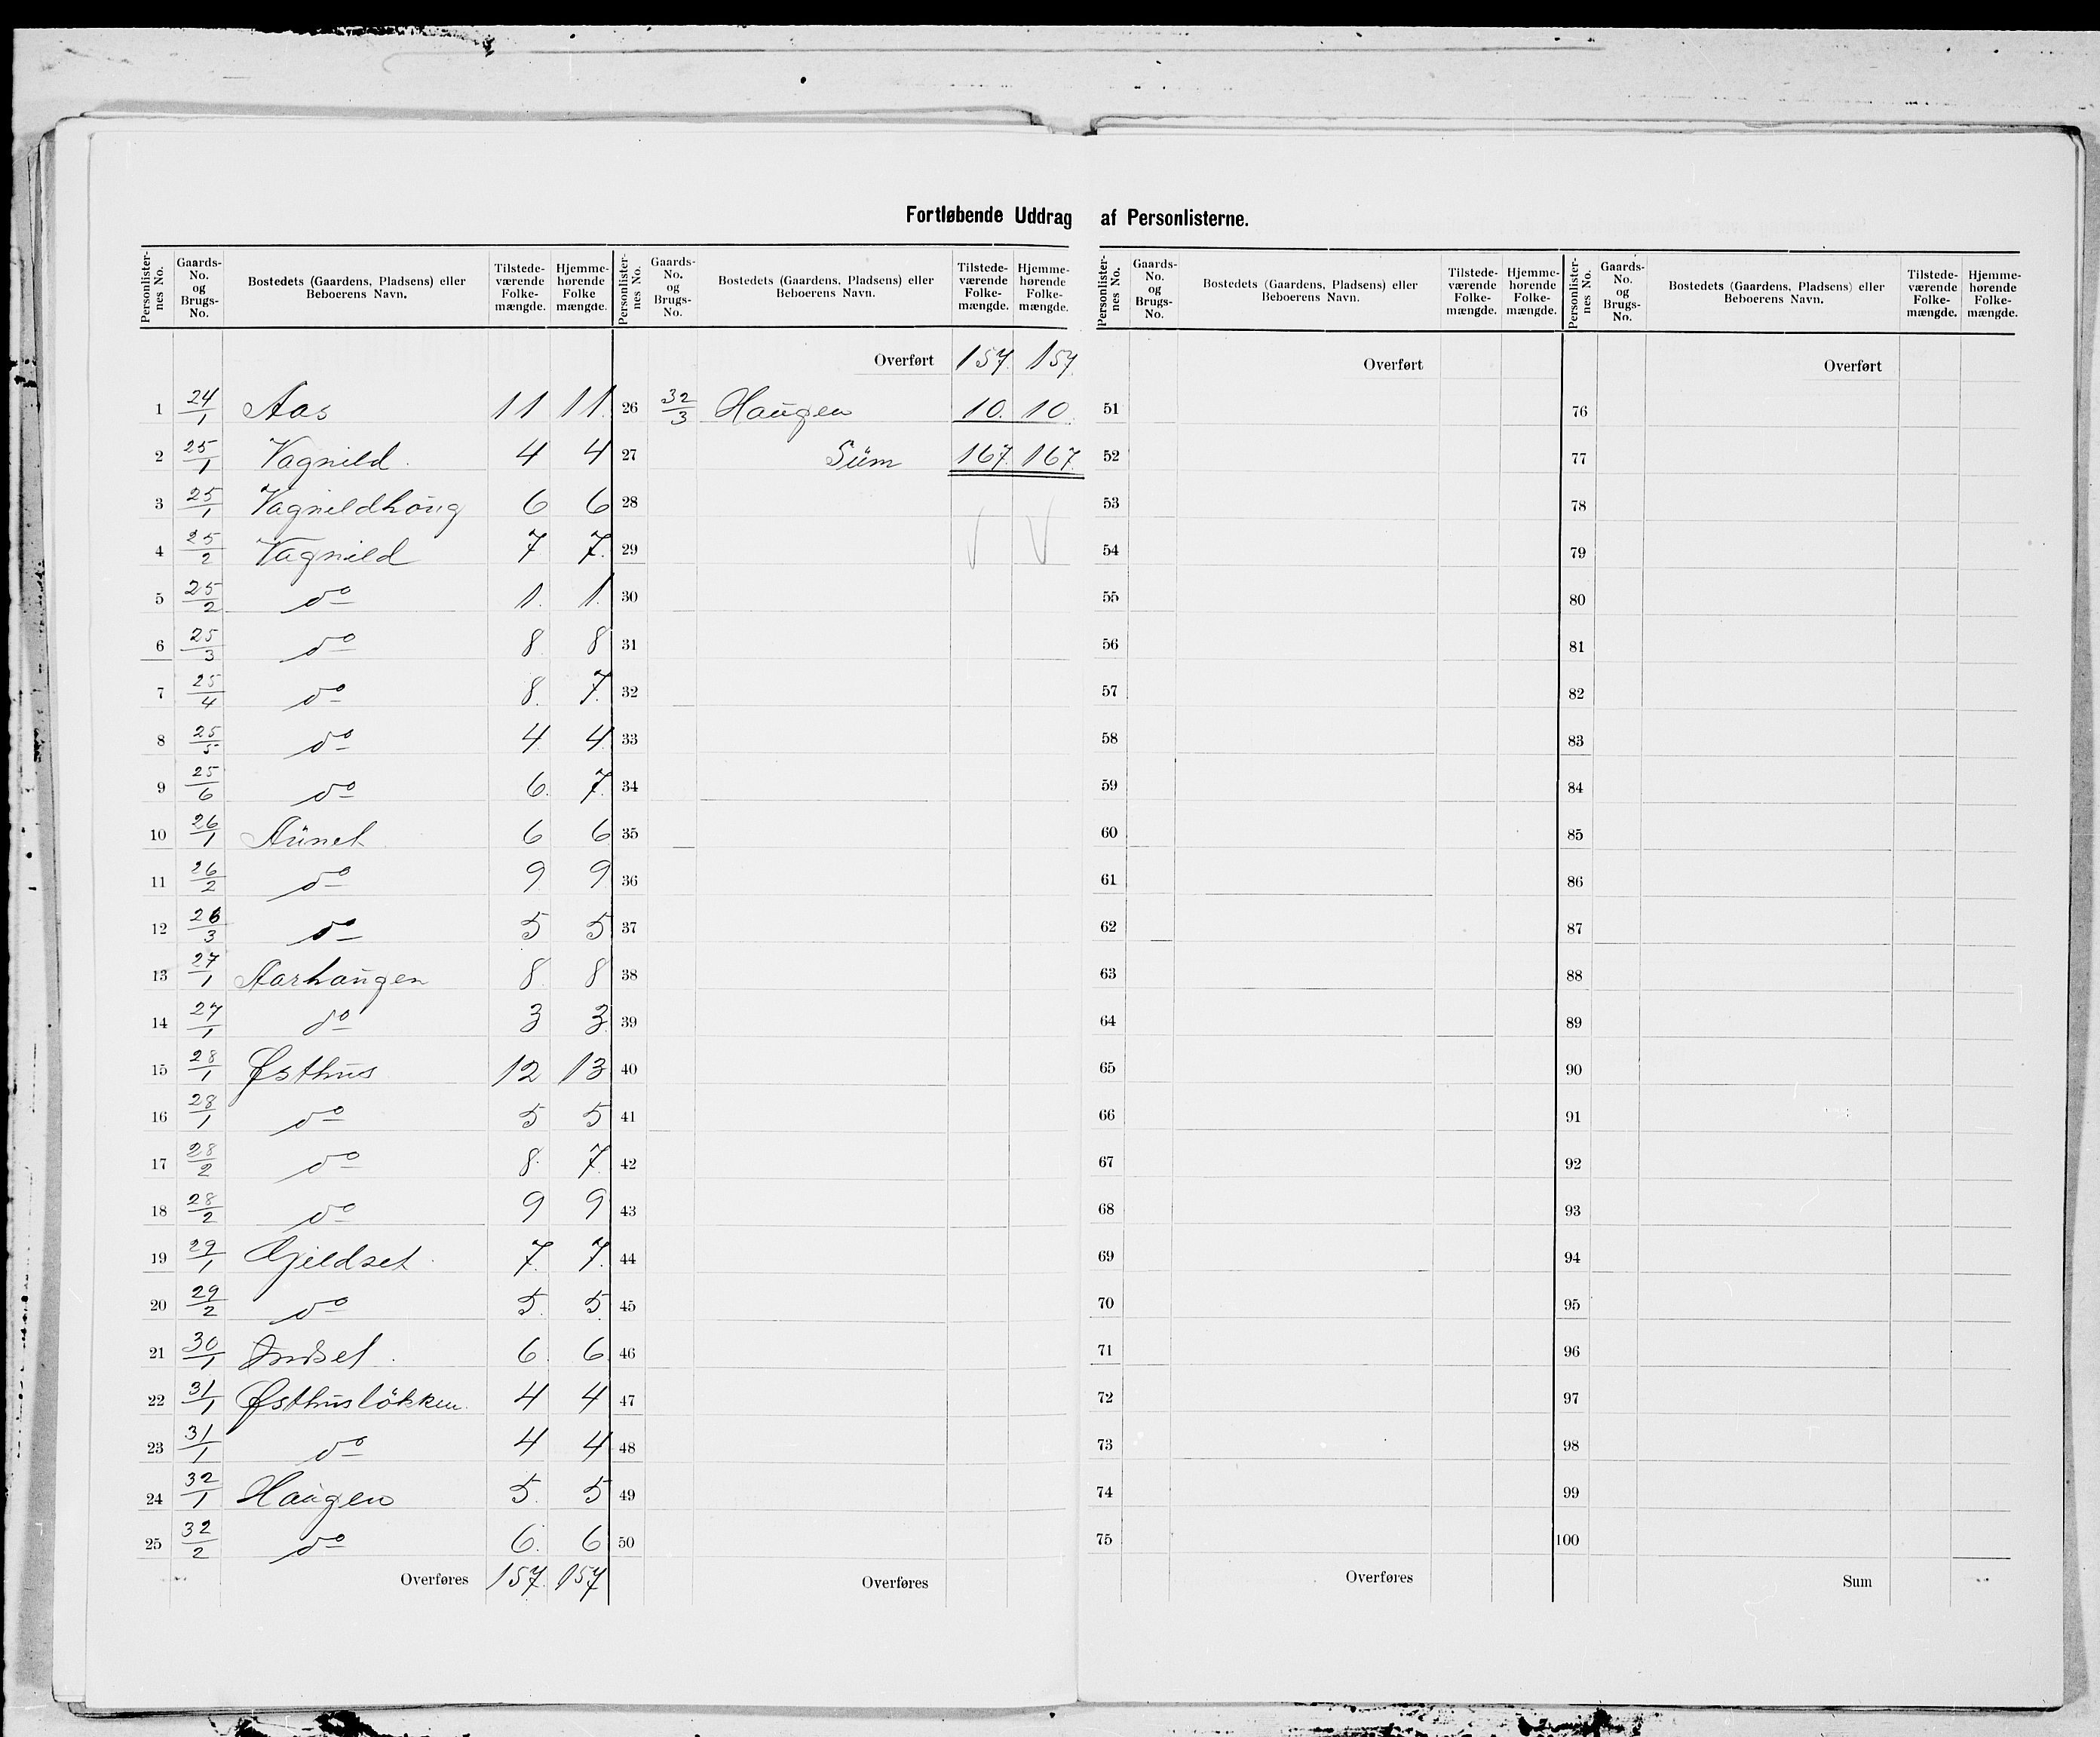 Fortløbende Uddrag af Personlisterne.
Personlister-nes No. | Gaards-No. og Brugs-No. | Bostedets (Gaardens, Pladsens) eller Beboerens Navn. | Tilstede-værende Folke-mængde. | Hjemme-hørende Folke mængde.
1 24/1 Aas 11 11
2 25/1 Vagnild. 4 4
3 25/1 Vagnildhoug 6 6
4 25/2 Vagnild 7 7.
5 25/2 do 1. 1.
6 25/3 do 8 8
7 25/4 do 8. 7.
8 25/5 do 4 4
9 25/6 do 6. 7.
10 26/1 Aunet 6 6
11 26/2 do 9 9
12 26/3 do 5 5
13 27/1 Aarhaugen 8 8
14 27/1 do 3 3
15 28/1 Østhus 12 13
16 28/1 do 5 5
17 28/2 do 8. 7.
18 28/2 do 9 9
19 29/1 Gjeldset. 7. 7.
20 29/2 do 5. 5
21 30/1 Indset. 6. 6
22 31/1 Østhusløkken. 4 4
23 31/1 do 4 4
24 32/1 Haugen 5. 5
25 32/2 do 6. 6
Overføres 157. 157
Personlister-nes No. | Gaards-No. og Brugs-No. | Bostedets (Gaardens, Pladsens) eller Beboerens Navn. | Tilstede-værende Folke-mængde. | Hjemme-hørende Folke-mængde.
Overført 157. 157.
26 32/3 Haugen 10. 10.
27 Sum 167 167.
28
29
30
31
32
33
34
35
36
37
38
39
40
41
42
43
44
45
46
47
48
49
50
Overføres
Personlister-nes No. | Gaards-No. og Brugs-No. | Bostedets (Gaardens, Pladsens) eller Beboerens Navn. | Tilstede-værende Folke-mængde. | Hjemme-hørende Folke-mængde.
Overført
51
52
53
54
55
56
57
58
59
60
61
62
63
64
65
66
67
68
69
70
71
72
73
74
75
Overføres
Personlister-nes No. | Gaards-No. og Brugs-No. | Bostedets (Gaardens, Pladsens) eller Beboerens Navn. | Tilstede-værende Folke-mængde. | Hjemme-hørende Folke-mængde.
Overført
76
77
78
79
80
81
82
83
84
85
86
87
88
89
90
91
92
93
94
95
96
97
98
99
100
Sum